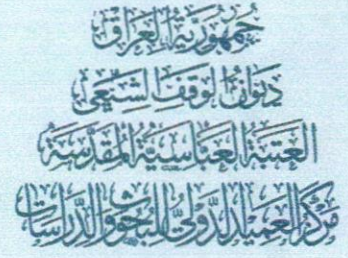 جُمْهُورِيَّةُ الْعِرَاقِ
دِيوَانُ الْوَقْفِ الشِّيعِيِّ
الْعَتَبَةُ الْعَبَّاسِيَّةُ الْمُقَدَّسَةُ
مَرْكَزُ الْعَمِيدِ الدَّوْلِيُّ لِلْبُحُوثِ وَالدِّرَاسَاتِ